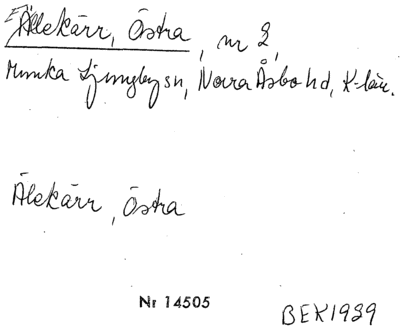 Älekärr, Östra, nr 2,
Munka Ljungby sn, Norra Åsbo hd, K-län.
Älekärr, Östra
Nr 14505
BEK 1939